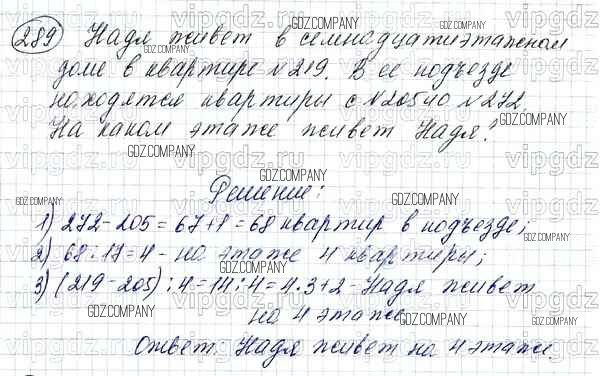 289 Надя живет в семнадцатиэтажном
доме в квартире №219. В ее подъезде
находятся квартиры с №205 по №272.
На каком этаже живет Надя?
Решение:
1) 272-205=67+1=68 квартир в подъезде;
2) 68:17=4 - на этаже 4 квартиры;
3) (219-205):4=14:4=4·3+2 - Надя живет
на 4 этаже.
Ответ: Надя живет на 4 этаже.
GDZ.COMPANY
vipgdz.ru